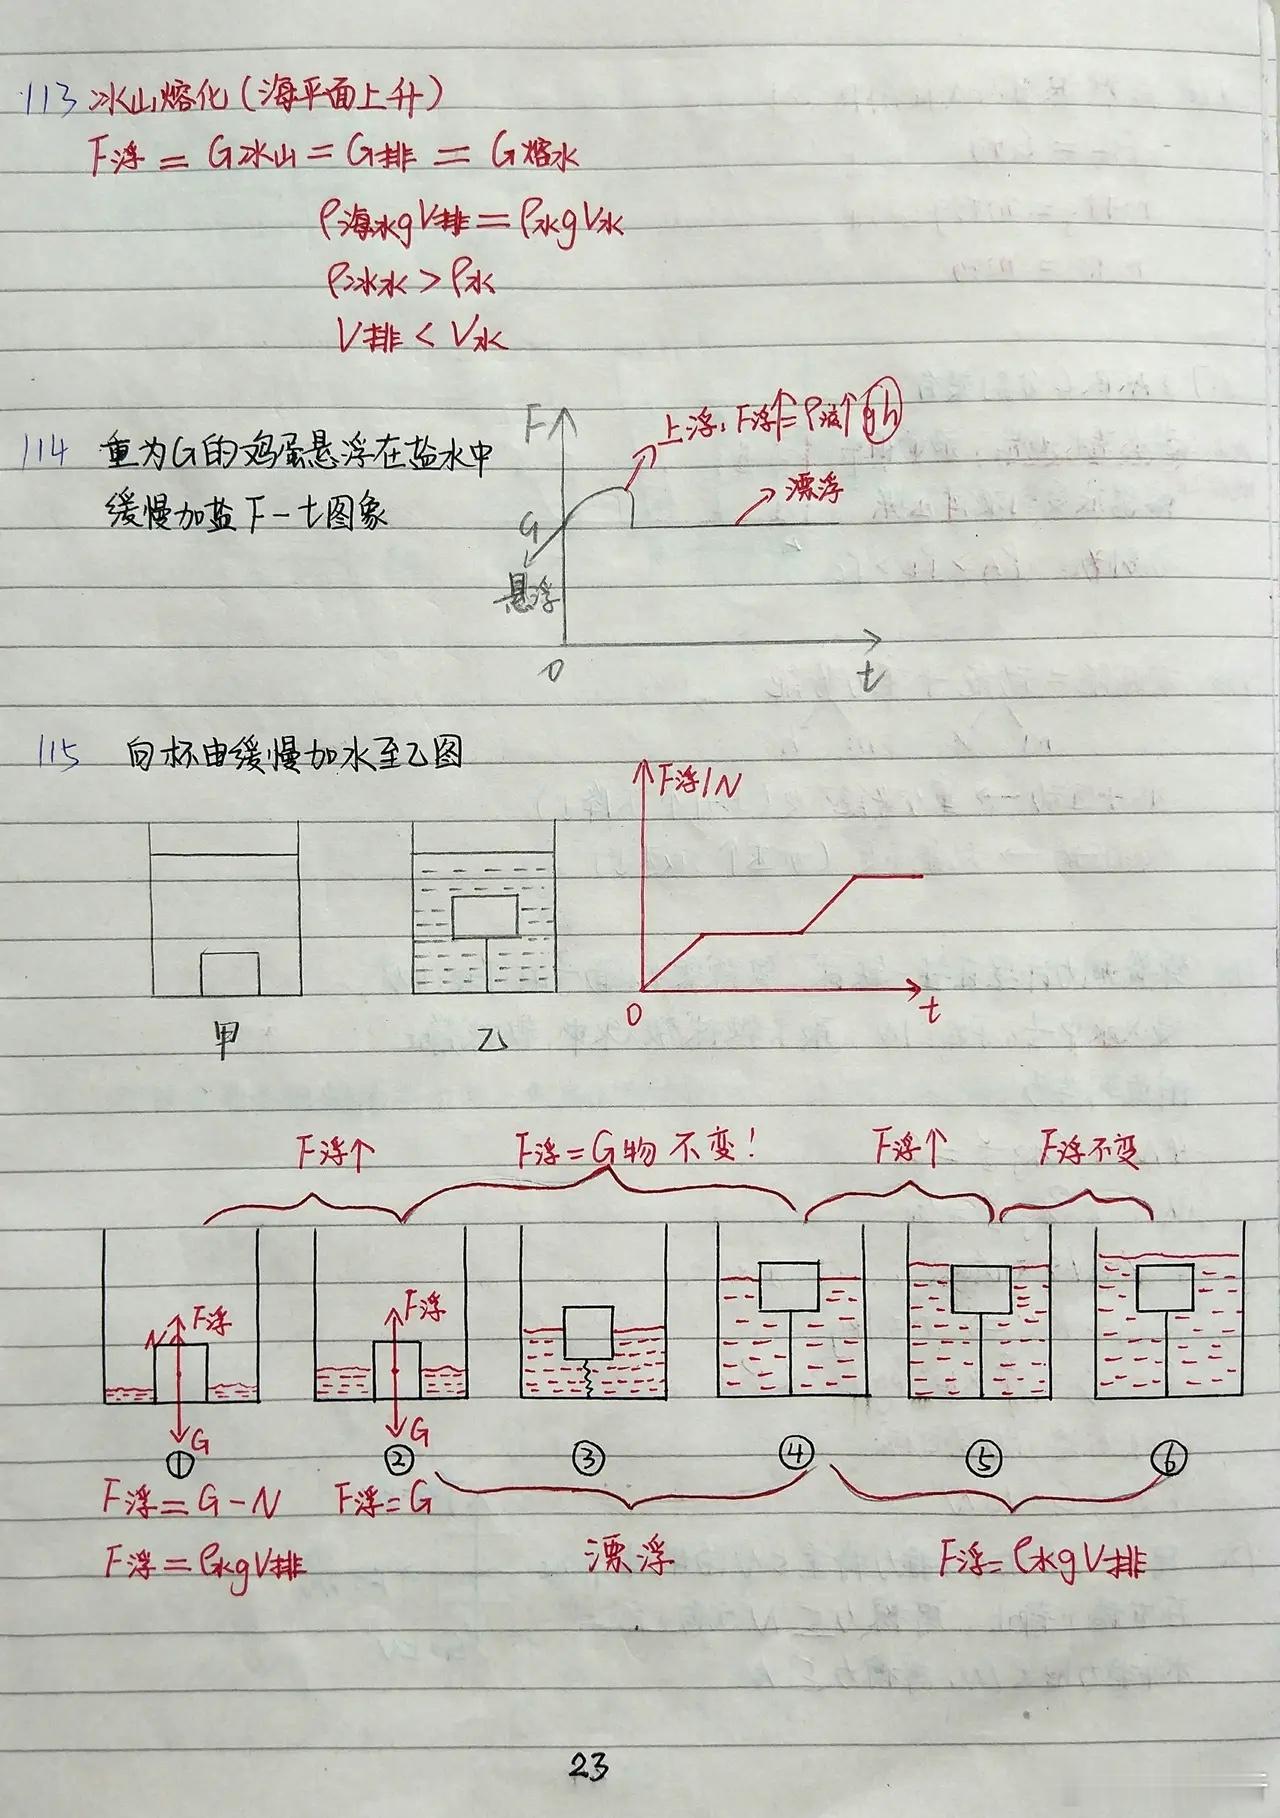 113 冰山熔化(海平面上升)
F浮 = G冰山 = G排 = G熔水
ρ海水gV排 = ρ水gV水
ρ冰水 > ρ水
V排 < V水
114 重为G的鸡蛋悬浮在盐水中
缓慢加盐 F-t图象
F
上浮: F浮↑=ρ液↑gh
漂浮
G
悬浮
0
t
115 向杯由缓慢加水至乙图
F浮/N
0
t
甲
乙
F浮↑
F浮=G物 不变!
F浮↑
F浮不变
N
F浮
G
F浮
G
① ② ③ ④ ⑤ ⑥
F浮=G-N
F浮=G
F浮=ρ水gV排
漂浮
F浮=ρ水gV排
23